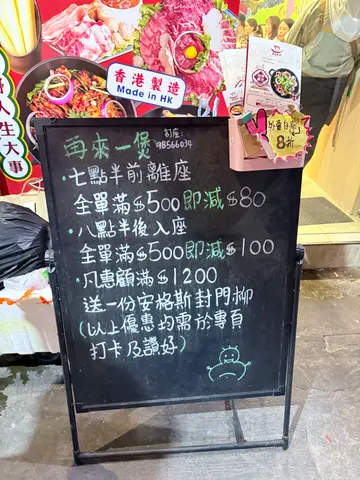 香港製造
Made in HK
訂座:
98566034
再來一煲
·七點半前離座
全單滿$500即減$80
·八點半後入座
全單滿$500即減$100
·凡惠顧滿$1200
送一份安格斯封門柳
(以上優惠均需於專頁
打卡及讚好)
外賣自取
8折
人生大事